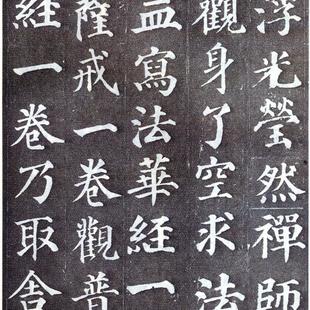 浮光瑩然禪師
觀身了空求法
血寫法華經一
薩戒一卷觀普
經一卷乃取舍